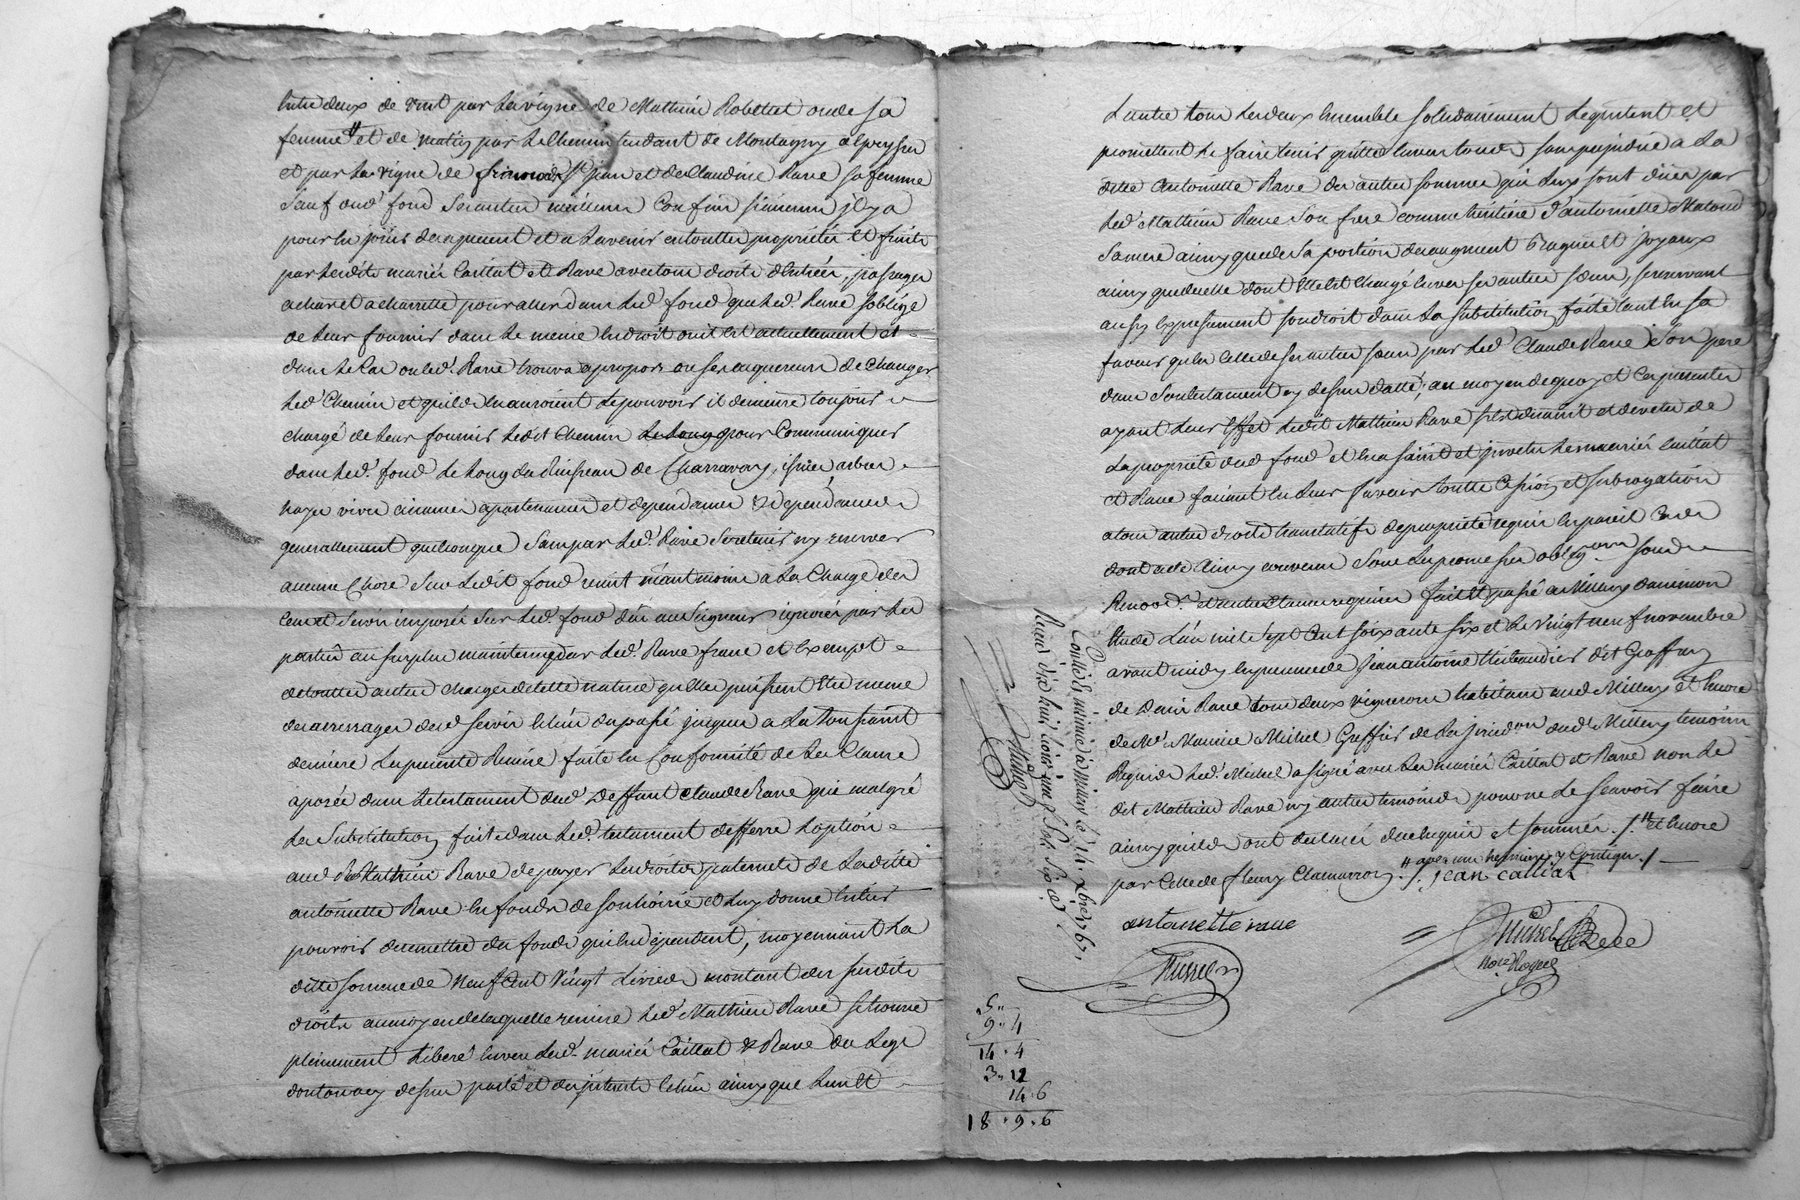 entre deux de vent par la vigne de Mathieu Robettet ou de sa
femme et de matin par le Chemin tendant de Montagny
et par la vigne de jean et de Claudine Rave sa femme
Sauf dud. fond Ses autres meilleurs Confins si aucuns il y a
pour en jouir des apresent et a l'avenir en toutte propriété et fruits
par lesdits mariés Caillat et Rave avec tous droits d'entrées, passages
a char et a charrette pour aller dans led. fond que led. Rave s'oblige
de leur fournir dans le meme endroit ou il est actuellement et
dans le Cas ou led. Rave trouva apropos ou ses acquereurs de changer
led. Chemin et qu'ils en auroient le pouvoir il demeure toujours
chargé de leur fournir ledit Chemin pour Communiquer
dans led. fond le long du Ruisseau de Charravay, arbres
hayes vives aisances apartenances et dependances & dependances
generallement quelconques Sans par led. Rave Se retenir ny reserver
aucune Chose Sur ledit fond remit neantmoins a la Charge des
Cens et Servis imposés Sur led. fond dûs au Seigneur ignorés par les
parties au surplus maintenu par led. Rave franc et Exempt
de touttes autres charges de telle nature qu'elles puissent etre meme
des arrerages desd. servis Echus du passé jusques a la Toussaint
derniere La presente Remise faite en Conformité de la Clause
aposée dans le testament dud. deffunt Claude Rave qui malgré
la Substitution faite dans led. testament defferre L'option
aud. Mathieu Rave de payer les droits paternels de Laditte
antoinette Rave en fonds de son hoirie et luy donne Entier
pouvoir de remettre des fonds qui en dependent, moyennant La
ditte somme de Neuf Cent Vingt Livres montant des susdits
droits au moyen de laquelle remise led. Mathieu Rave se trouve
pleinement Liberé envers lesd. mariés Caillat & Rave du Legs
dont on a cy dessus parlé et des interets Echus ainsy que L'un Et
L'autre tous les deux Ensemble solidairement Le quittent et
promettent le faire tenir quitte Envers tous sans prejudice a La
ditte Antoinette Rave des autres sommes qui Luy sont dües par
led. Mathieu Rave Son frere comme heritiere d'antoinette
Sa mere ainsy que de Sa portion daugment Bagues Et Joyaux
ainsy que de celle dont il est Chargé Envers Ses autres sœurs, se reservant
aussy Expressement son droit dans La Substitution faite tant En Sa
faveur qu'en Celle de Ses autres sœurs par led. Claude Rave Son pere
dans Son testament cy dessus datté; au moyen de quoy et Ces presentes
ayant leur Effet ledit Mathieu Rave s'est demis et devetu de
La propriété dud. fond et En a saisit et investit les mariés Caillat
et Rave faisant En leur faveur toutte Cession et subrogation
a tous autres droits translatifs de propriété requis En pareil Cas
dont acte Ainsy convenu Sous les promesses obligaons soumd.
Renoods. et autres Clauses requises fait Et passé a Millery dans mon
Etude L'an mil Sept Cent soixante six et Le Vingt neuf novembre
avant midy En presence de Jean antoine Thibaudier dit Goffray
de Rave tous deux vignerons habitans aud. Millery et Encore
de Me. Maurice Michel Greffier de la jurisdon dud. Millery temoins
Requis led. Michel a signé avec les mariés Caillat et Rave non Le
dit Mathieu Rave ny autres temoins pour ne le Scavoir faire
ainsy qu'ils ont declaré de ce Enquis et sommés. et Encore
par Celle de fleury Chamarron
jean Calliat
antoinette rave
Michel
nore Royal
Controllé et insinué à millery le 14. xbre 1767
Reçu dix huit livres neuf Sols Six d.
5 ..
9 .. 4
14 . 4
3 .. 12
14 . 6
18 . 9 . 6